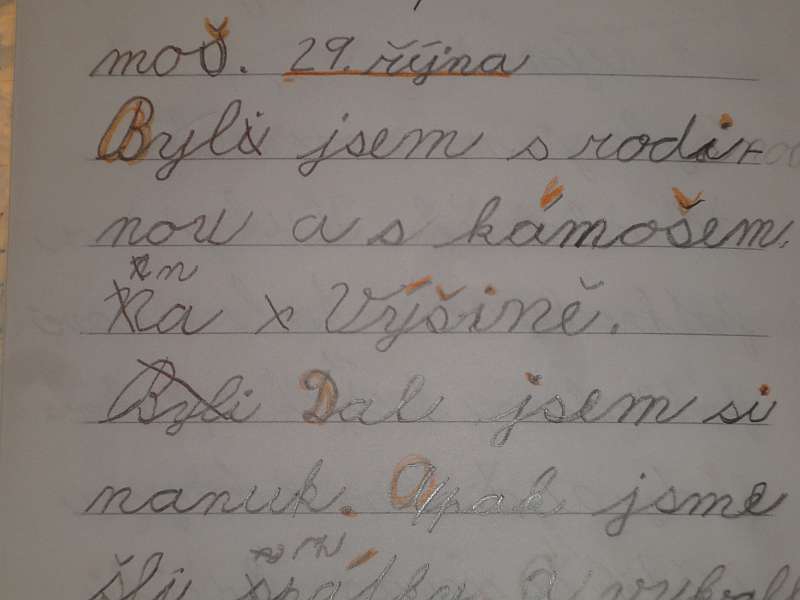 moš. 29. října
Byli jsem s rodi-
nou a s kámošem.
n
Na x Výšině.
Byli Dal jsem si
nanuk. Apak jsme
šli spátky a vykoll